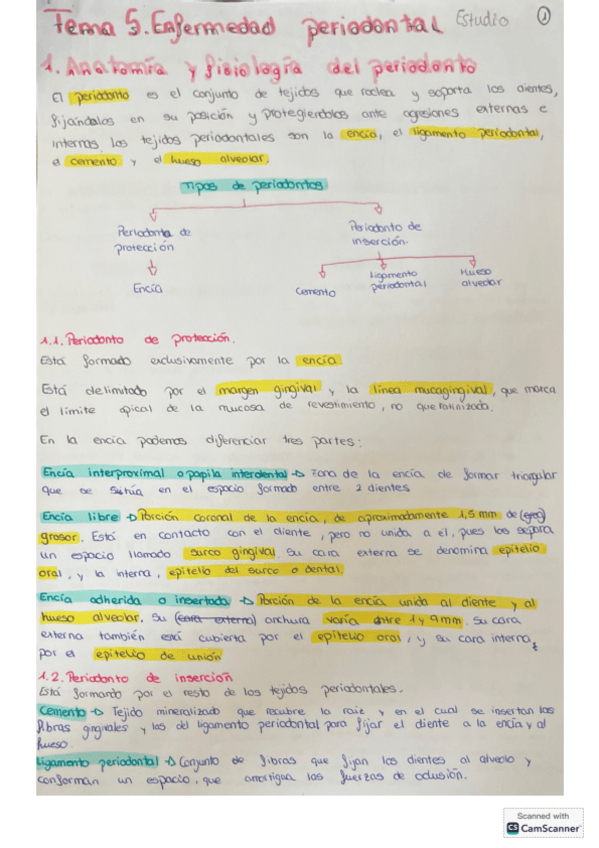 Tema 5. Enfermedad periodontal Estudio 1
1. Anatomía y fisiología del periodonto
El periodonto es el conjunto de tejidos que rodea y soporta los dientes,
fijándolos en su posición y protegiendolos ante agresiones externas e
internas. los tejidos periodontales son la encía, el ligamento periodontal,
el cemento y el hueso alveolar.
Tipos de periodontos
Periodonto de
protección
Encía
Periodonto de
inserción.
Cemento
Ligamento
periodontal
Hueso
alveolar
1.1. Periodonto de protección.
Está formado exclusivamente por la encía
Está delimitado por el margen gingival y la línea mucogingival, que marca
el límite apical de la mucosa de revestimiento, no queratinizada.
En la encía podemos diferenciar tres partes:
Encía interproximal o papila interdental → Zona de la encía de formar triangular
que se situa en el espacio formado entre 2 dientes
Encía libre → Porción coronal de la encía, de aproximadamente 1,5 mm de
grosor. Está en contacto con el diente, pero no unida a el, pues los separa
un espacio llamado surco gingival. Su cara externa se denomina epitelio
oral, y la interna, epitelio del surco o dental.
Encía adherida o insertada → Porción de la encía unida al diente y al
hueso alveolar. Su (cara externa) anchura varía entre 1 y 9mm. su cara
externa también está cubierta por el epitelio oral, y su cara interna,
por el epitelio de unión
1.2. Periodonto de inserción
Está formando por el resto de los tejidos periodontales.
Cemento → Tejido mineralizado que recubre la raíz y en el cual se insertan las
fibras gingivales y las del ligamento periodontal para fijar el diente a la encía y al
hueso.
Ligamento periodontal → Conjunto de fibras que fijan los dientes al alveolo y
conforman un espacio, que amortigua las fuerzas de oclusión.
Scanned with
CS CamScanner